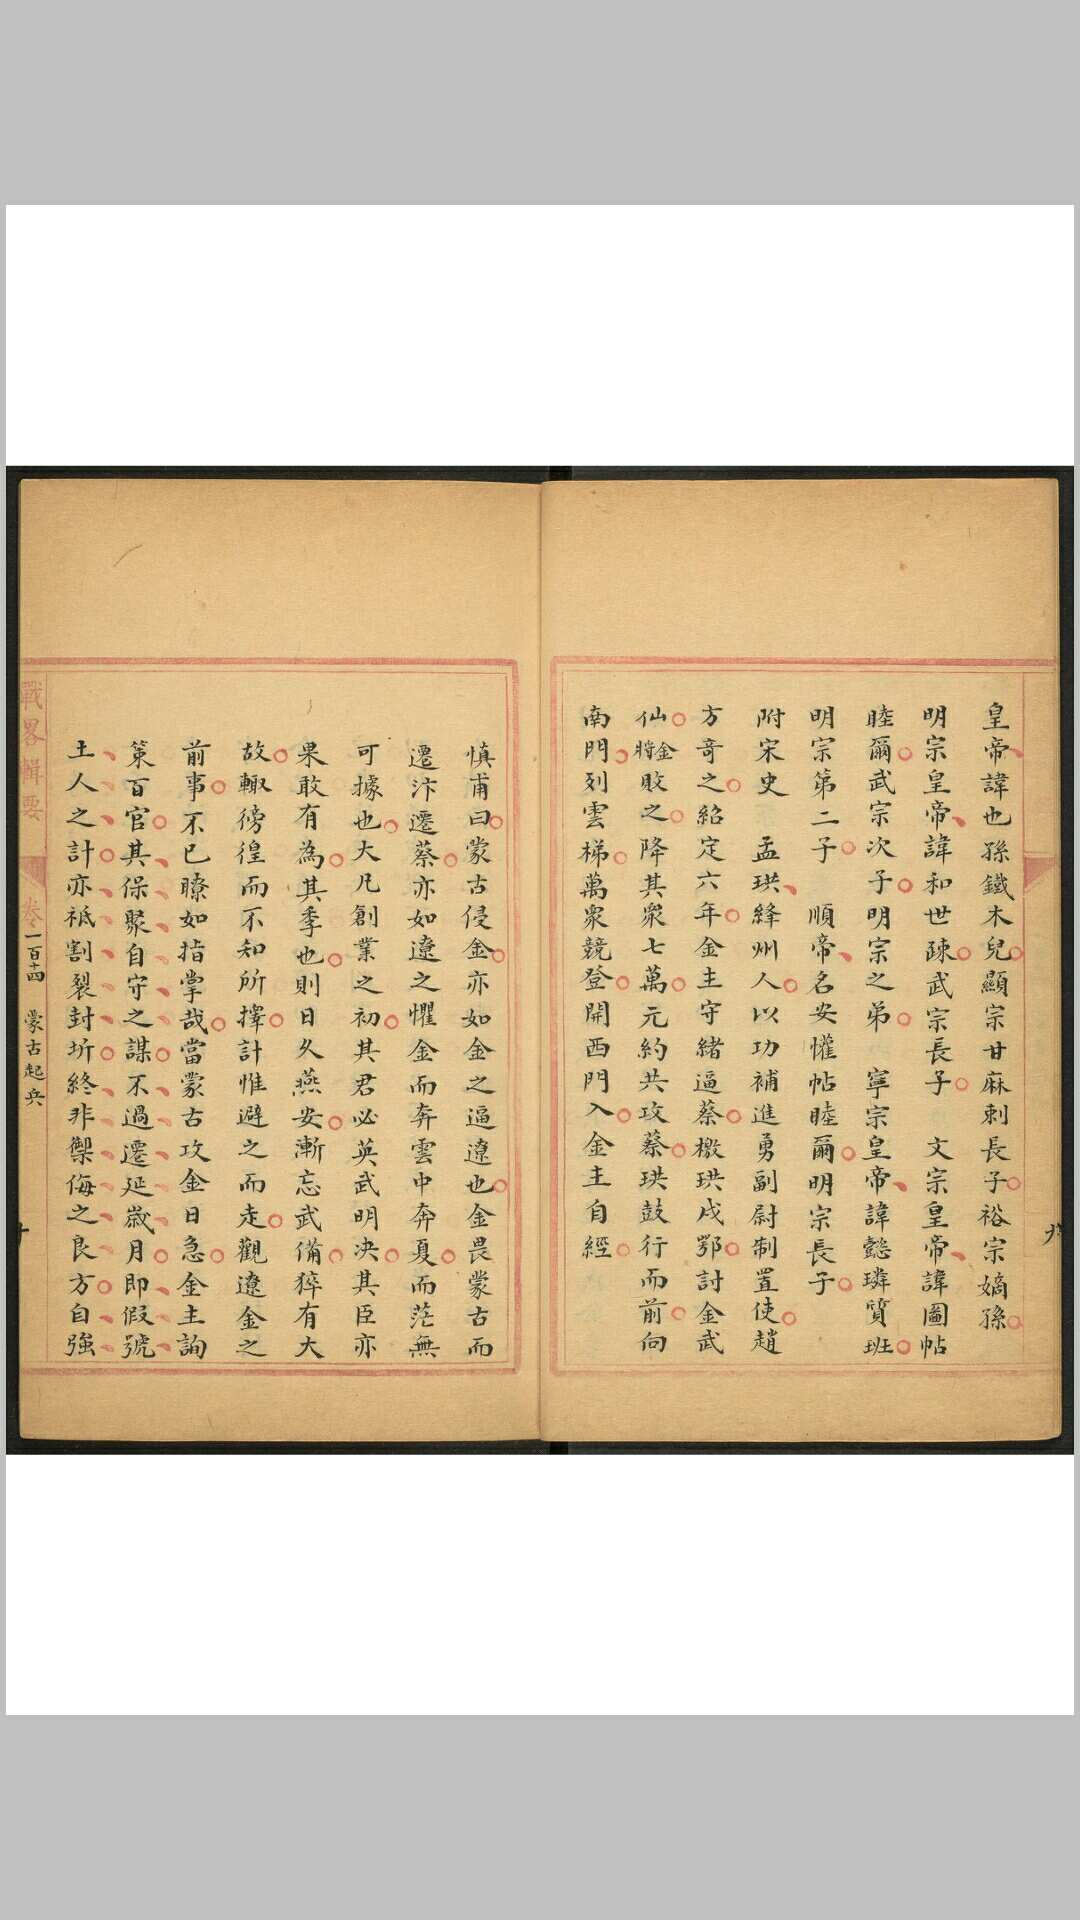 皇帝諱也孫鐵木兒顯宗甘麻剌長子裕宗嫡孫
明宗皇帝諱和世㻋武宗長子　文宗皇帝諱圖帖
睦爾武宗次子明宗之弟　寧宗皇帝諱懿璘質班
明宗第二子　順帝名妥懽帖睦爾明宗長子
附宋史　孟珙絳州人以功補進勇副尉制置使趙
方奇之紹定六年金主守緒逼蔡檄珙戍鄂討金武
仙金將敗之降其衆七萬元約共攻蔡珙鼓行而前向
南門列雲梯萬衆競登開西門入金主自經
九
慎甫曰蒙古侵金亦如金之逼遼也金畏蒙古而
遷汴遷蔡亦如遼之懼金而奔雲中奔夏而茫無
可據也大凡創業之初其君必英武明決其臣亦
果敢有為其季也則日久燕安漸忘武備猝有大
故輙徬徨而不知所擇計惟避之而走觀遼金之
前事不已瞭如指掌哉當蒙古攻金日急金主詢
策百官其保聚自守之謀不過遷延歲月即假號
土人之計亦祗割裂封圻終非禦侮之良方自強
戰畧輯要　卷一百十四　蒙古起兵　十